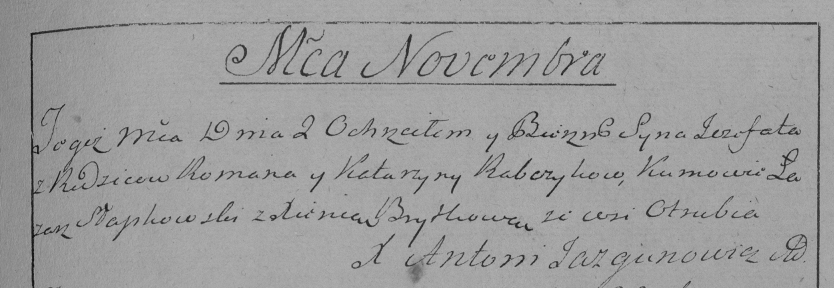 Mča Novembra
Togoż Mča Dnia 2 Ochrzciłem y Bierzm Syna Jozefata
z Rodzicow Romana y Katarzyny Rabczykow, Kumowie Ła
zarz Słapkowski z Xienią Bryćkową ze wsi Otrubia
X Antoni Jazgunowicz